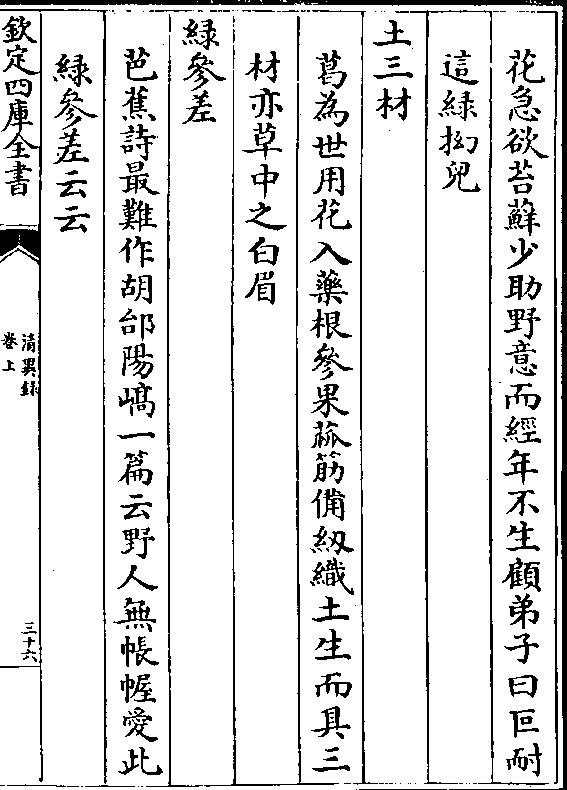 花急欲苔蘚少助野意而經年不生顧弟子曰叵耐
這綠拗兒
土三材
葛為世用花入藥根參果蓏筋備紉織土生而具三
材亦草中之白眉
綠參差
芭蕉詩最難作胡部陽嶠一篇云野人無帳幄愛此
綠參差云云
欽定四庫全書
清異錄
卷上
三十六